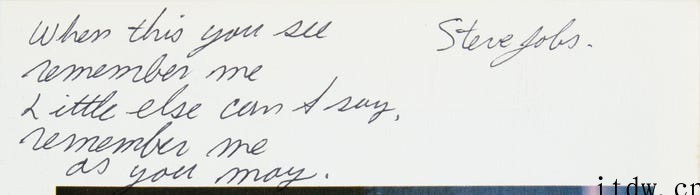 When this you see
remember me
Little else can I say,
remember me
as you may.
Steve Jobs.
itdw.cn